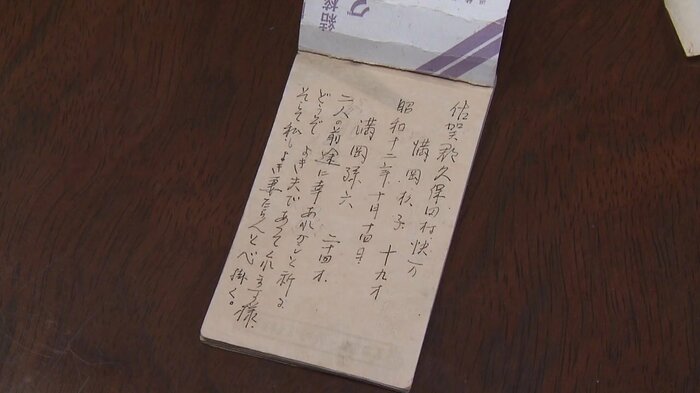 佐賀郡久保田村快万
満岡杉子 十九才
昭和十二年十月十四日
満岡孫六 二十四才
二人の前途に幸あれかしと祈る
どうぞよき夫であってくれます様
そして私もよき妻たらんと心掛く。
結核